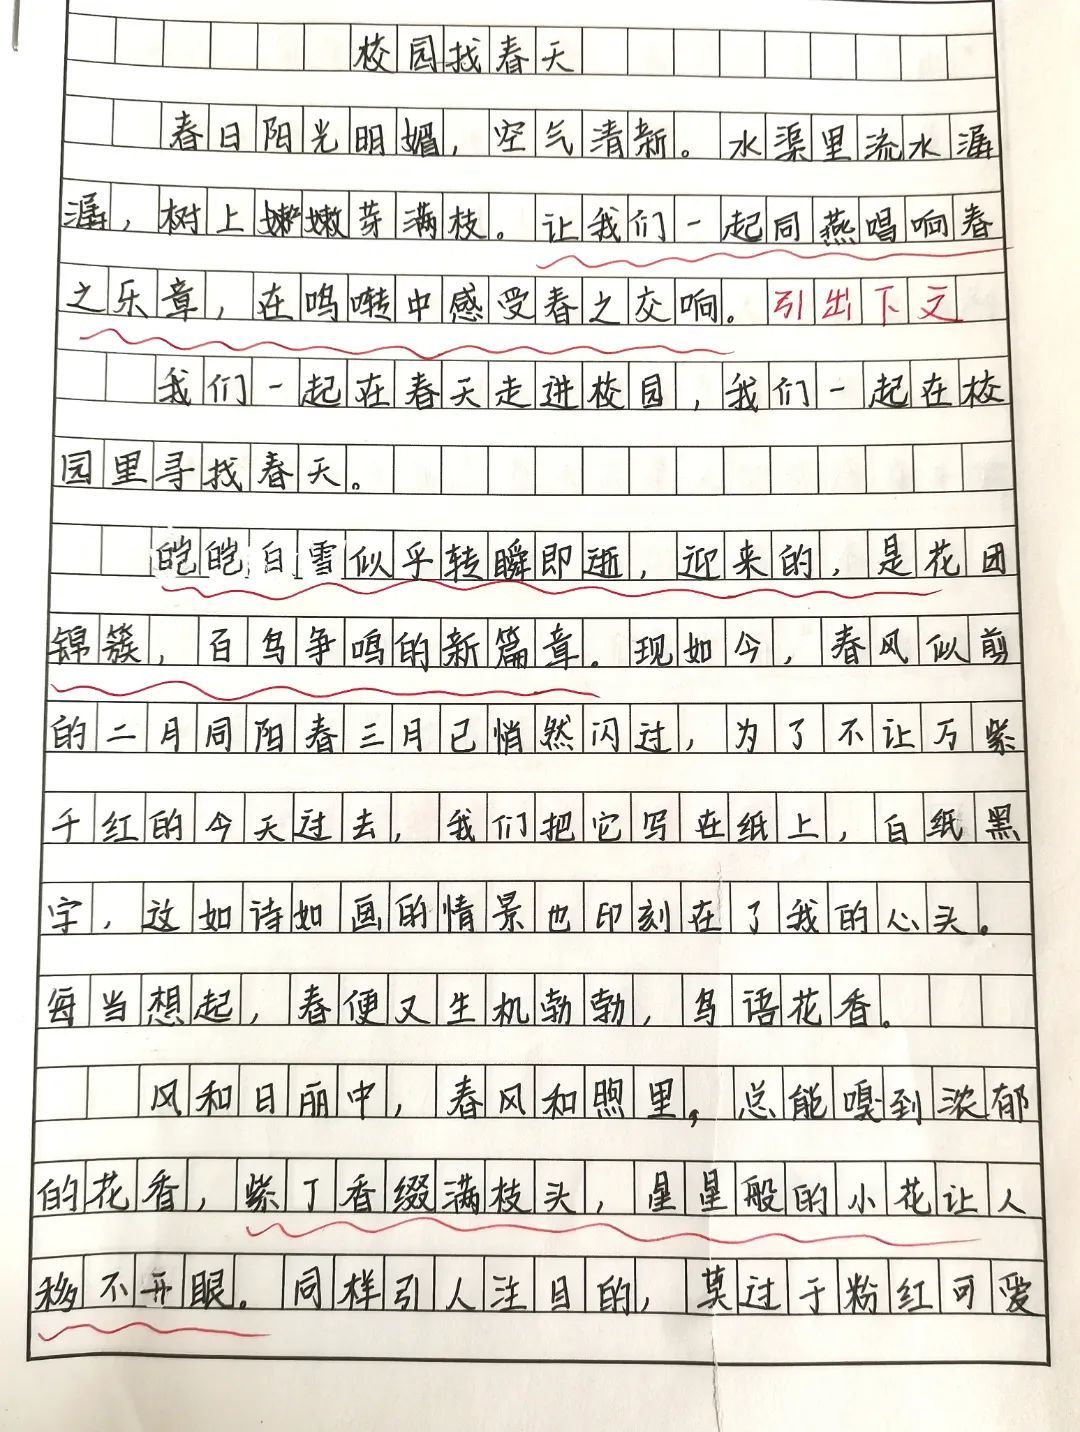 校园找春天
春日阳光明媚，空气清新。水渠里流水潺
潺，树上嫩嫩芽满枝。让我们一起同燕唱响春
之乐章，在鸣啭中感受春之交响。引出下文
我们一起在春天走进校园，我们一起在校
园里寻找春天。
皑皑白雪似乎转瞬即逝，迎来的，是花团
锦簇，百鸟争鸣的新篇章。现如今，春风似剪
的二月同阳春三月已悄然闪过，为了不让万紫
千红的今天过去，我们把它写在纸上，白纸黑
字，这如诗如画的情景也印刻在了我的心头。
每当想起，春便又生机勃勃，鸟语花香。
风和日丽中，春风和煦里，总能嗅到浓郁
的花香，紫丁香缀满枝头，星星般的小花让人
移不开眼。同样引人注目的，莫过于粉红可爱